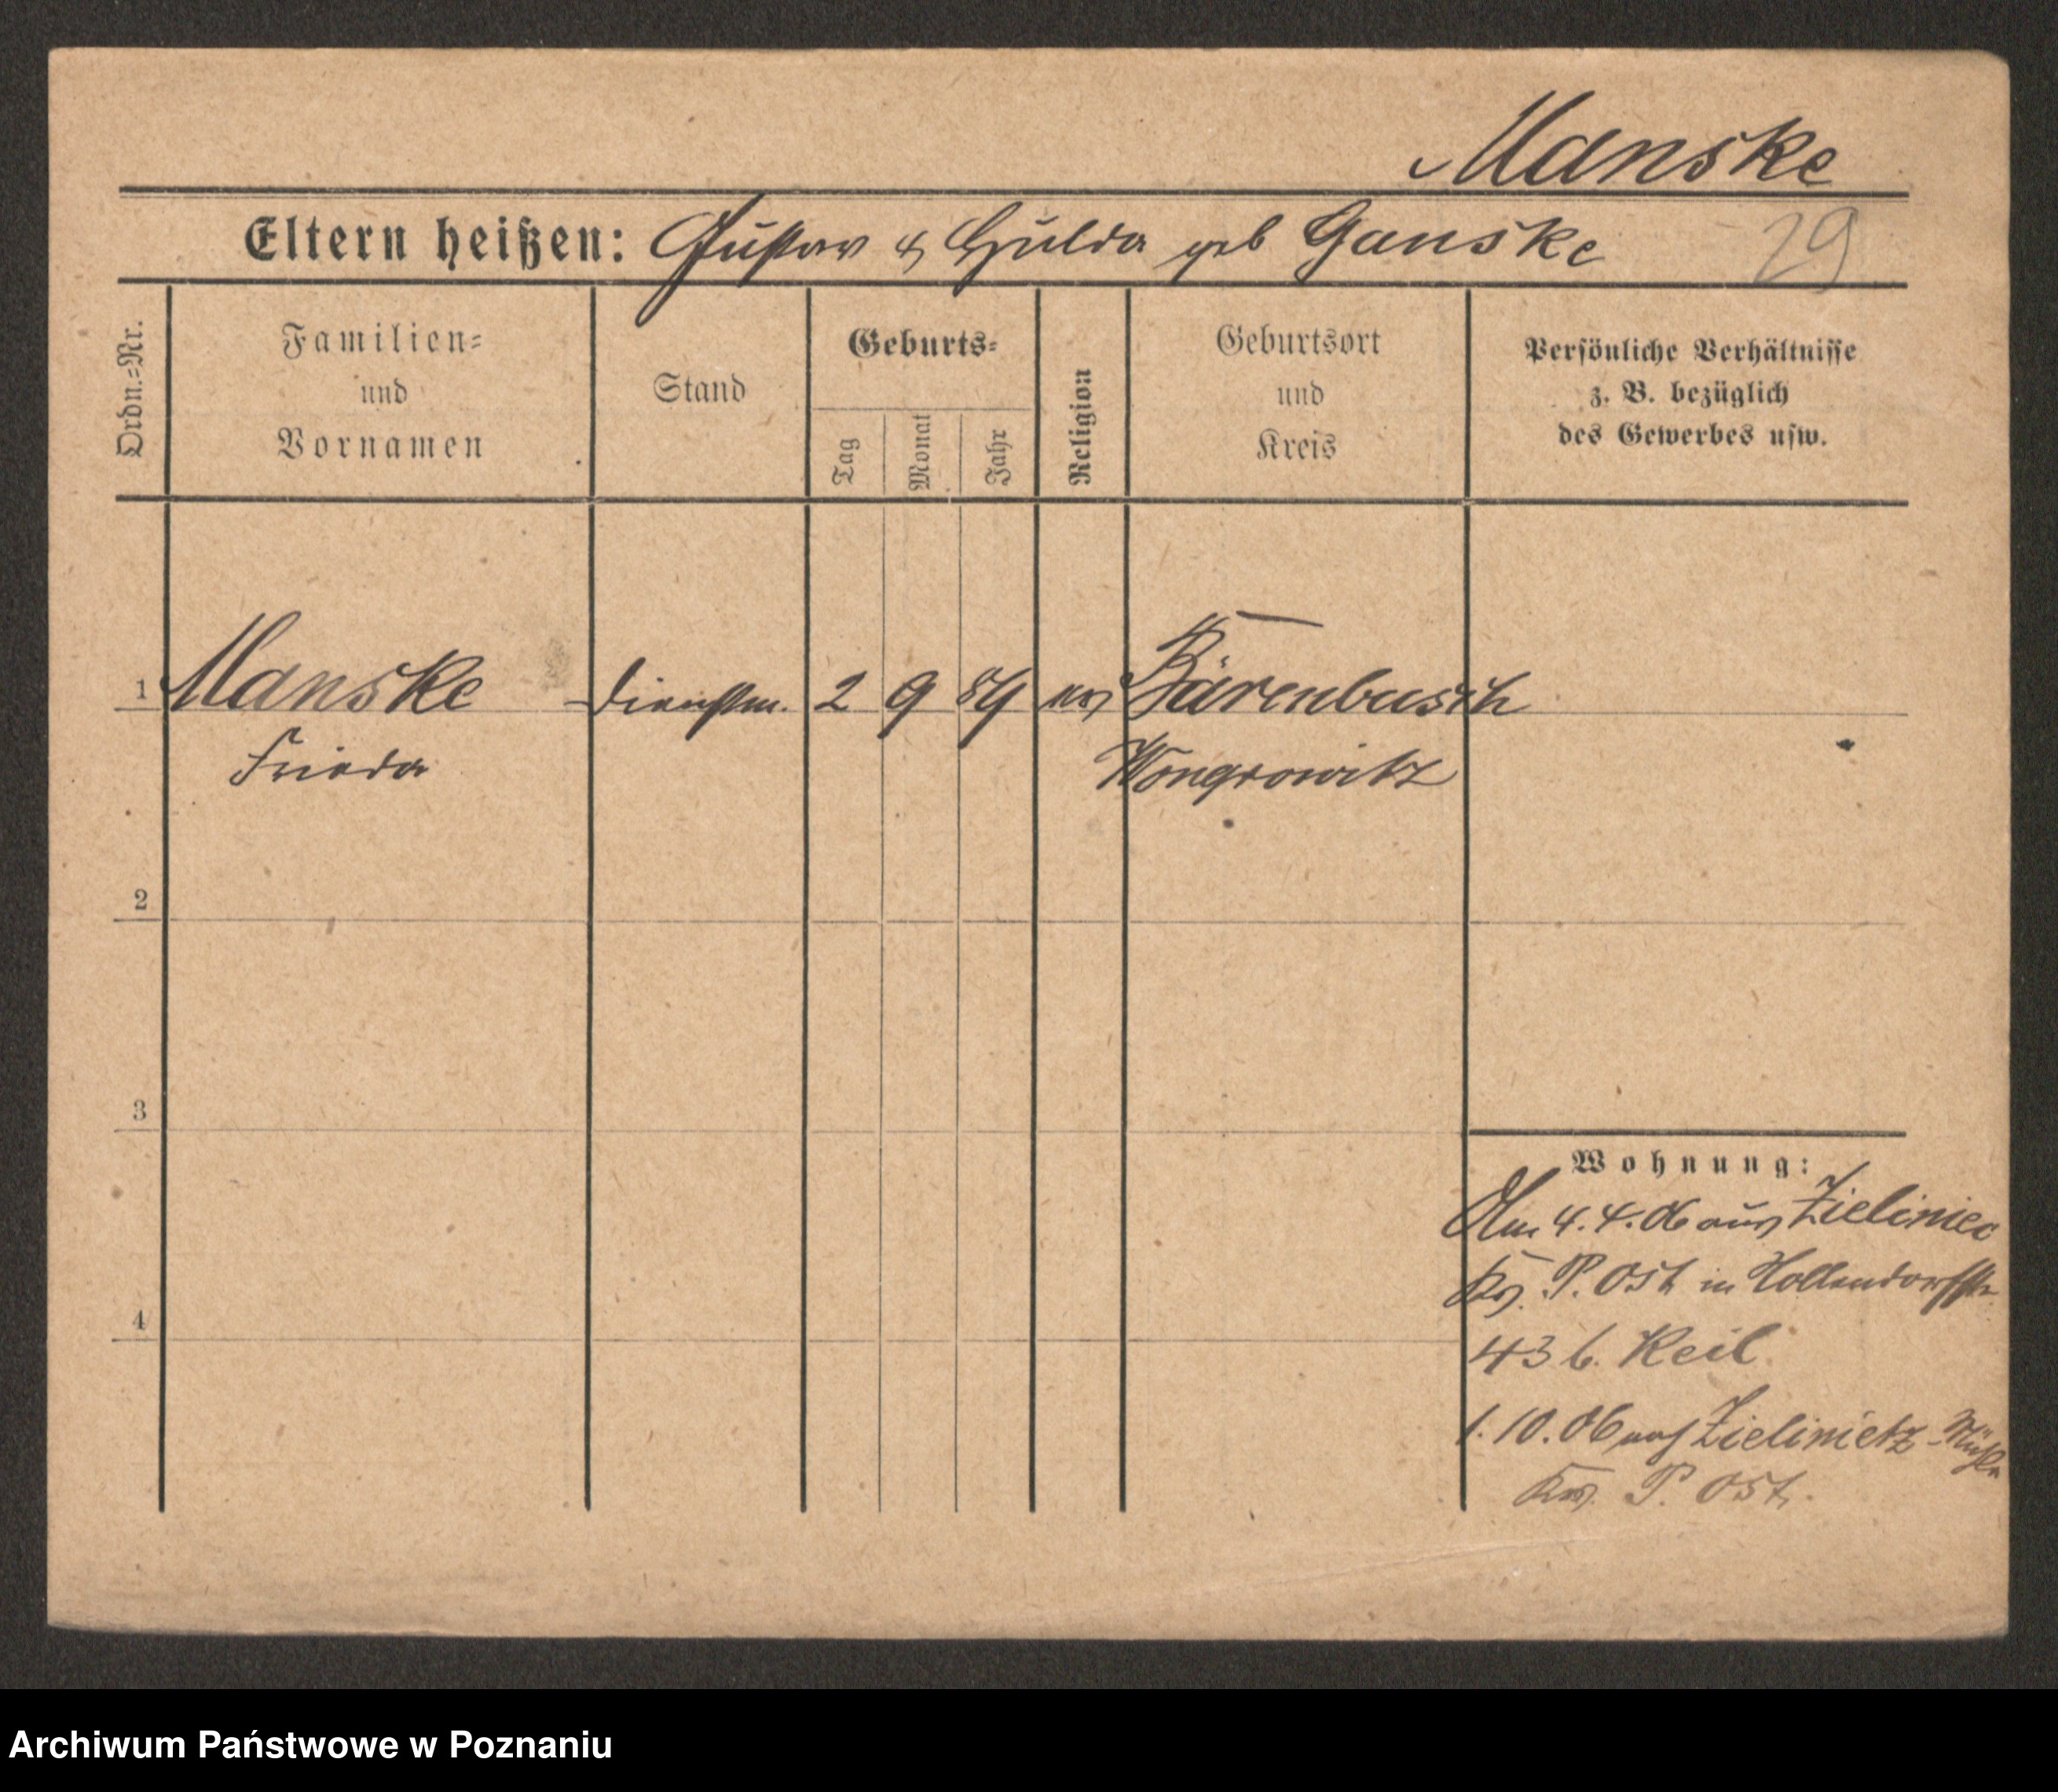 Manske
Eltern heißen: Gustav & Hulda geb Ganske
29
Ordn.=Nr.
Familien=
und
Vornamen
Stand
Geburts=
Tag
Monat
Jahr
Religion
Geburtsort
und
Kreis
Persönliche Verhältnisse
z. B. bezüglich
des Gewerbes usw.
1 Manske Dienstm. 2 9 89 ev Bärenbusch
Frieda Wongrowitz
2
3
4
Wohnung:
Am 4.4.06 aus Zieliniec
Krs. P. Ost in Hollendorfstr
43 b. Keil
1.10.06 nach Zielinietz-Mühle
Krs. P. Ost.
Archiwum Państwowe w Poznaniu